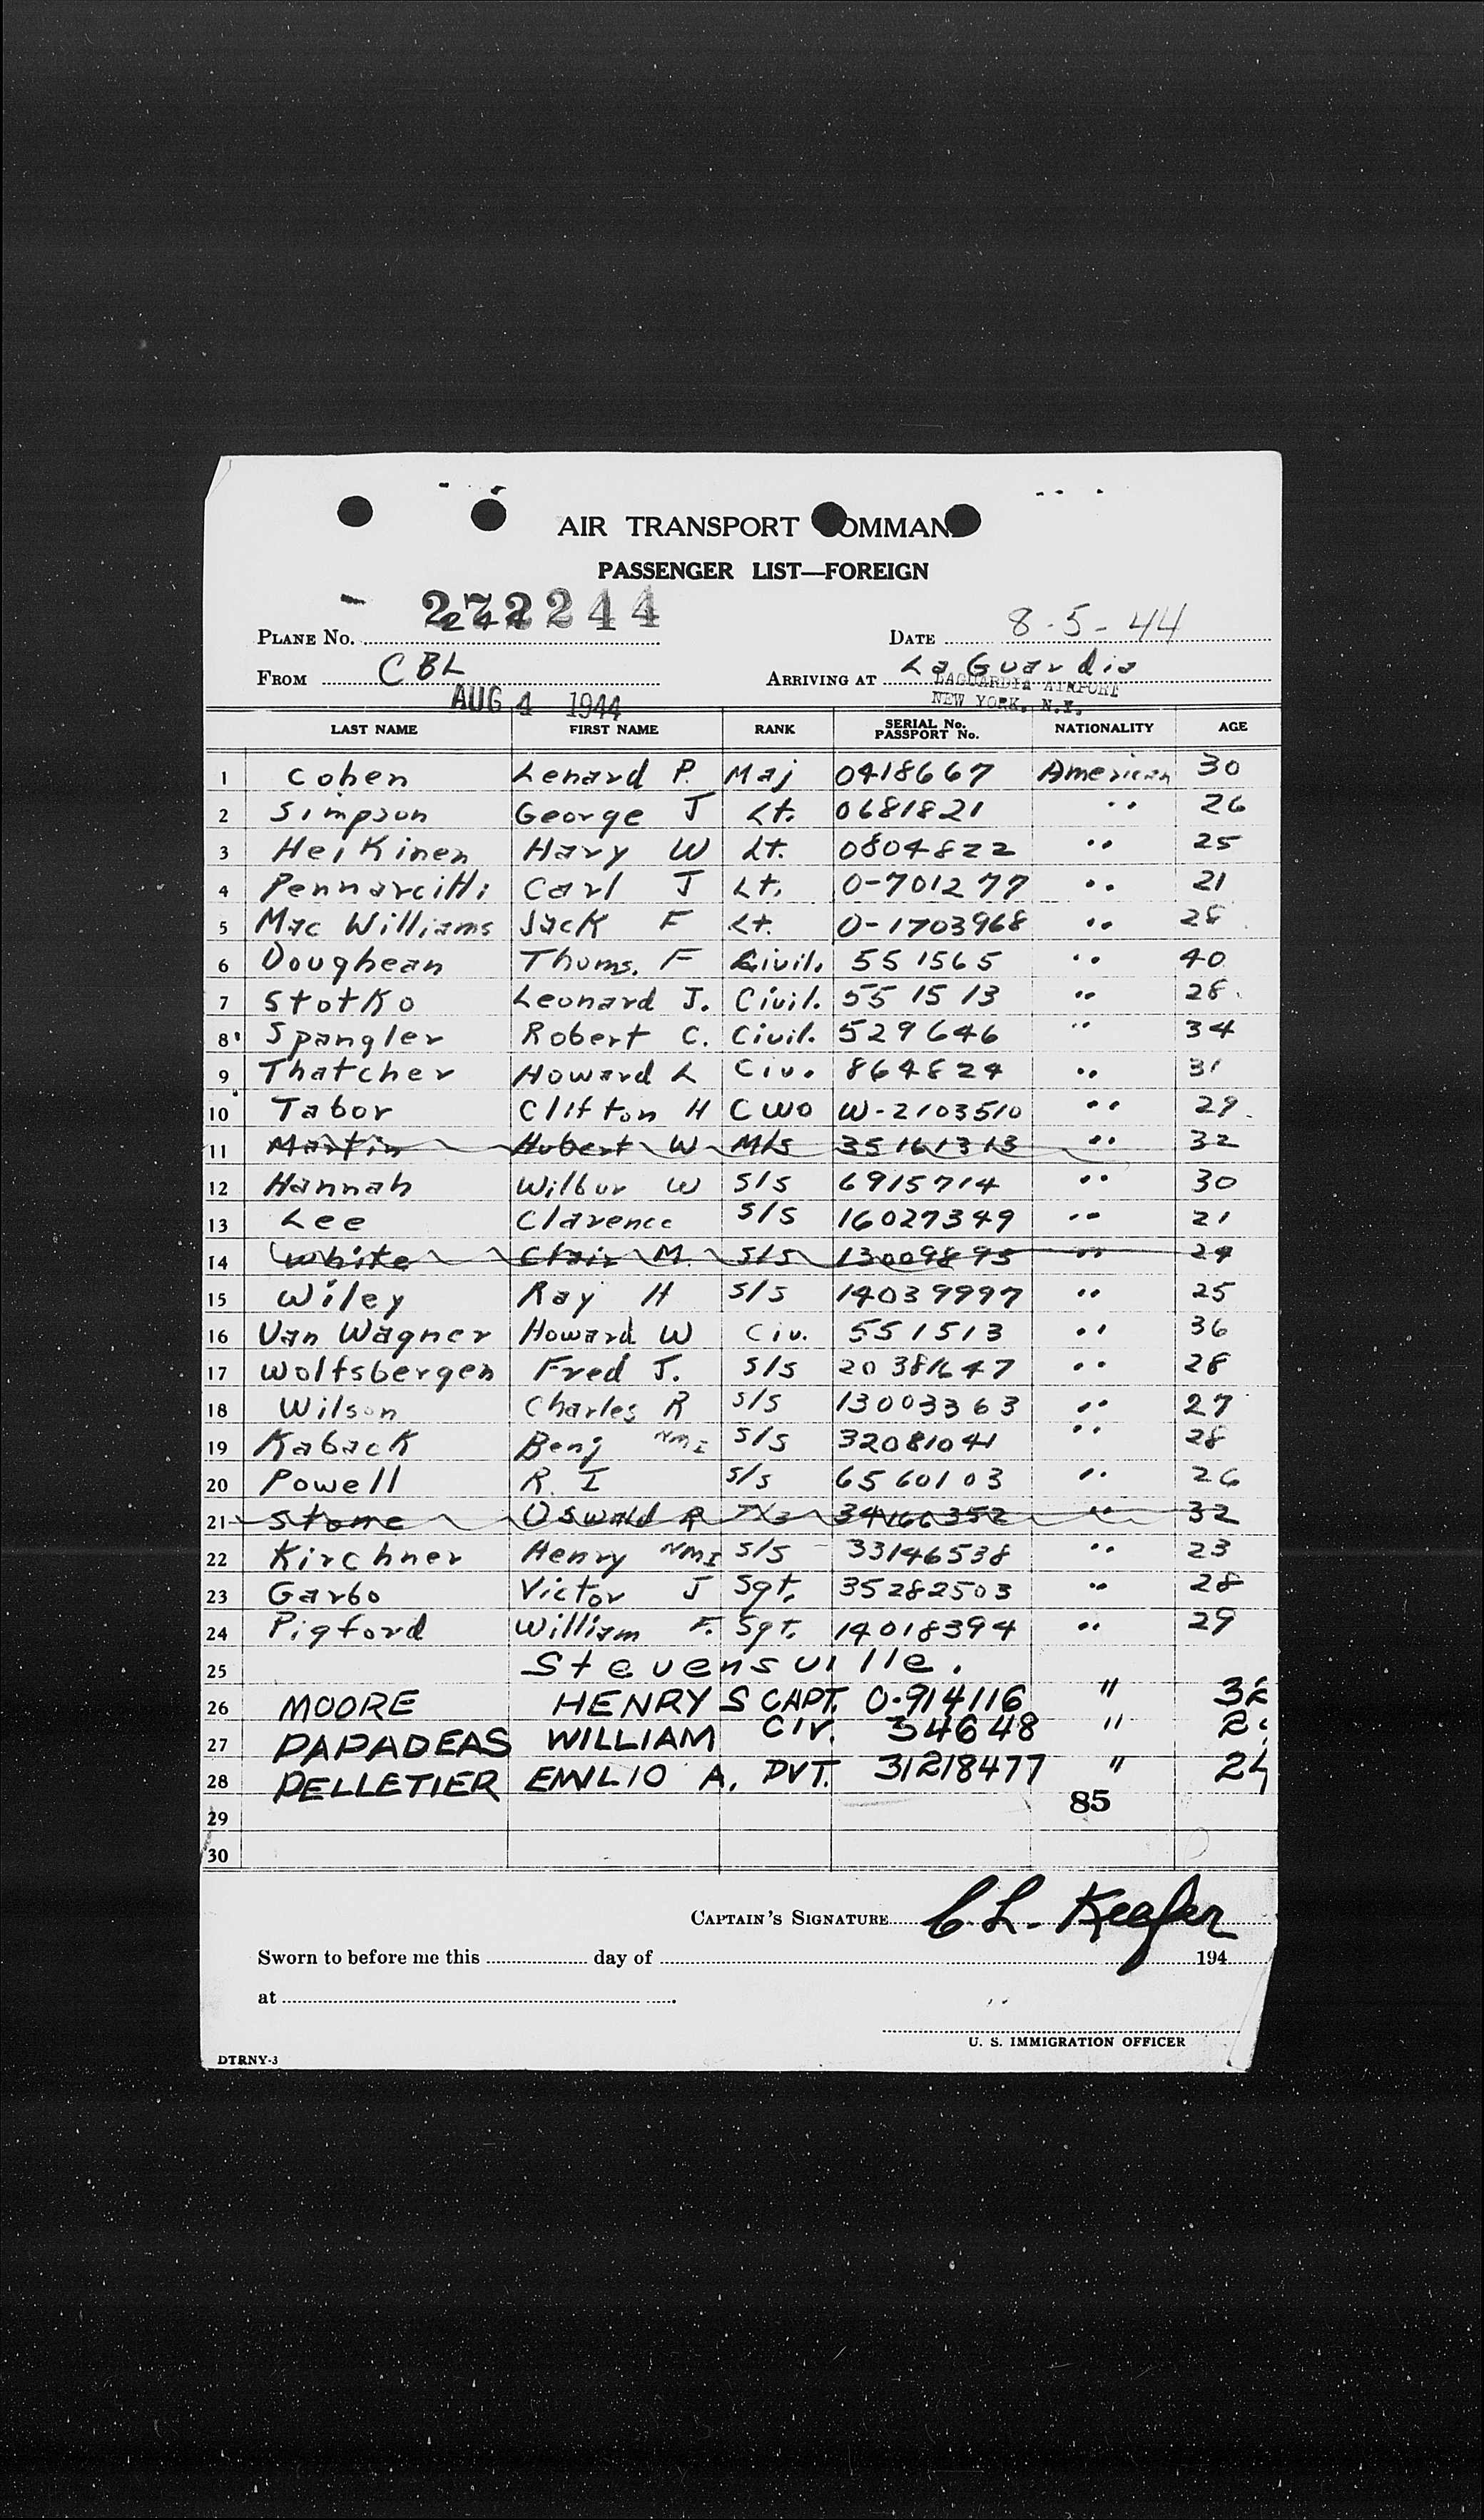 AIR TRANSPORT COMMAND
PASSENGER LIST—FOREIGN
PLANE No. 272244
DATE 8-5-44
FROM CBL
ARRIVING AT La Guardia
LAGUARDIA AIRPORT
AUG 4 1944
NEW YORK, N.Y.
LAST NAME FIRST NAME RANK SERIAL No. PASSPORT No. NATIONALITY AGE
1 Cohen Lenard P. Maj 0418667 American 30
2 Simpson George J Lt. 0681821 " 26
3 Heikinen Hary W Lt. 0804822 " 25
4 Carl J Lt. 0-701277 " 21
5 Mac Williams Jack F Lt. 0-1703968 " 28
6 Doughean Thoms. F Civil. 551565 " 40
7 Stotko Leonard J. Civil. 551513 " 28
8 Spangler Robert C. Civil. 529646 " 34
9 Thatcher Howard L Civ. 864824 " 31
10 Tabor Clifton H CWO W-2103510 " 29
11 Martin Hubert W M/S 35161313 " 32
12 Hannah Wilbur W S/S 6915714 " 30
13 Lee Clarence S/S 16027349 " 21
14 White Clair M. S/S 13009895 " 24
15 Wiley Ray H S/S 14039997 " 25
16 Van Wagner Howard W Civ. 551513 " 36
17 Wolfsbergen Fred J. S/S 20381647 " 28
18 Wilson Charles R S/S 13003363 " 27
19 Kaback Benj NMI S/S 32081041 " 28
20 Powell R. I S/S 6560103 " 26
21 Stone Oswald R 34166352 " 32
22 Kirchner Henry NMI S/S 33146538 " 23
23 Garbo Victor J Sgt. 35282503 " 28
24 Pigford William F. Sgt. 14018394 " 29
25 Stevensville.
26 MOORE HENRY S CAPT. 0-914116 " 32
27 PAPADEAS WILLIAM CIV. 34648 "
28 PELLETIER EMILIO A. PVT. 31218477 " 24
85
29
30
CAPTAIN'S SIGNATURE C. L. Keefer
Sworn to before me this day of 194
at
U. S. IMMIGRATION OFFICER
DTRNY-3